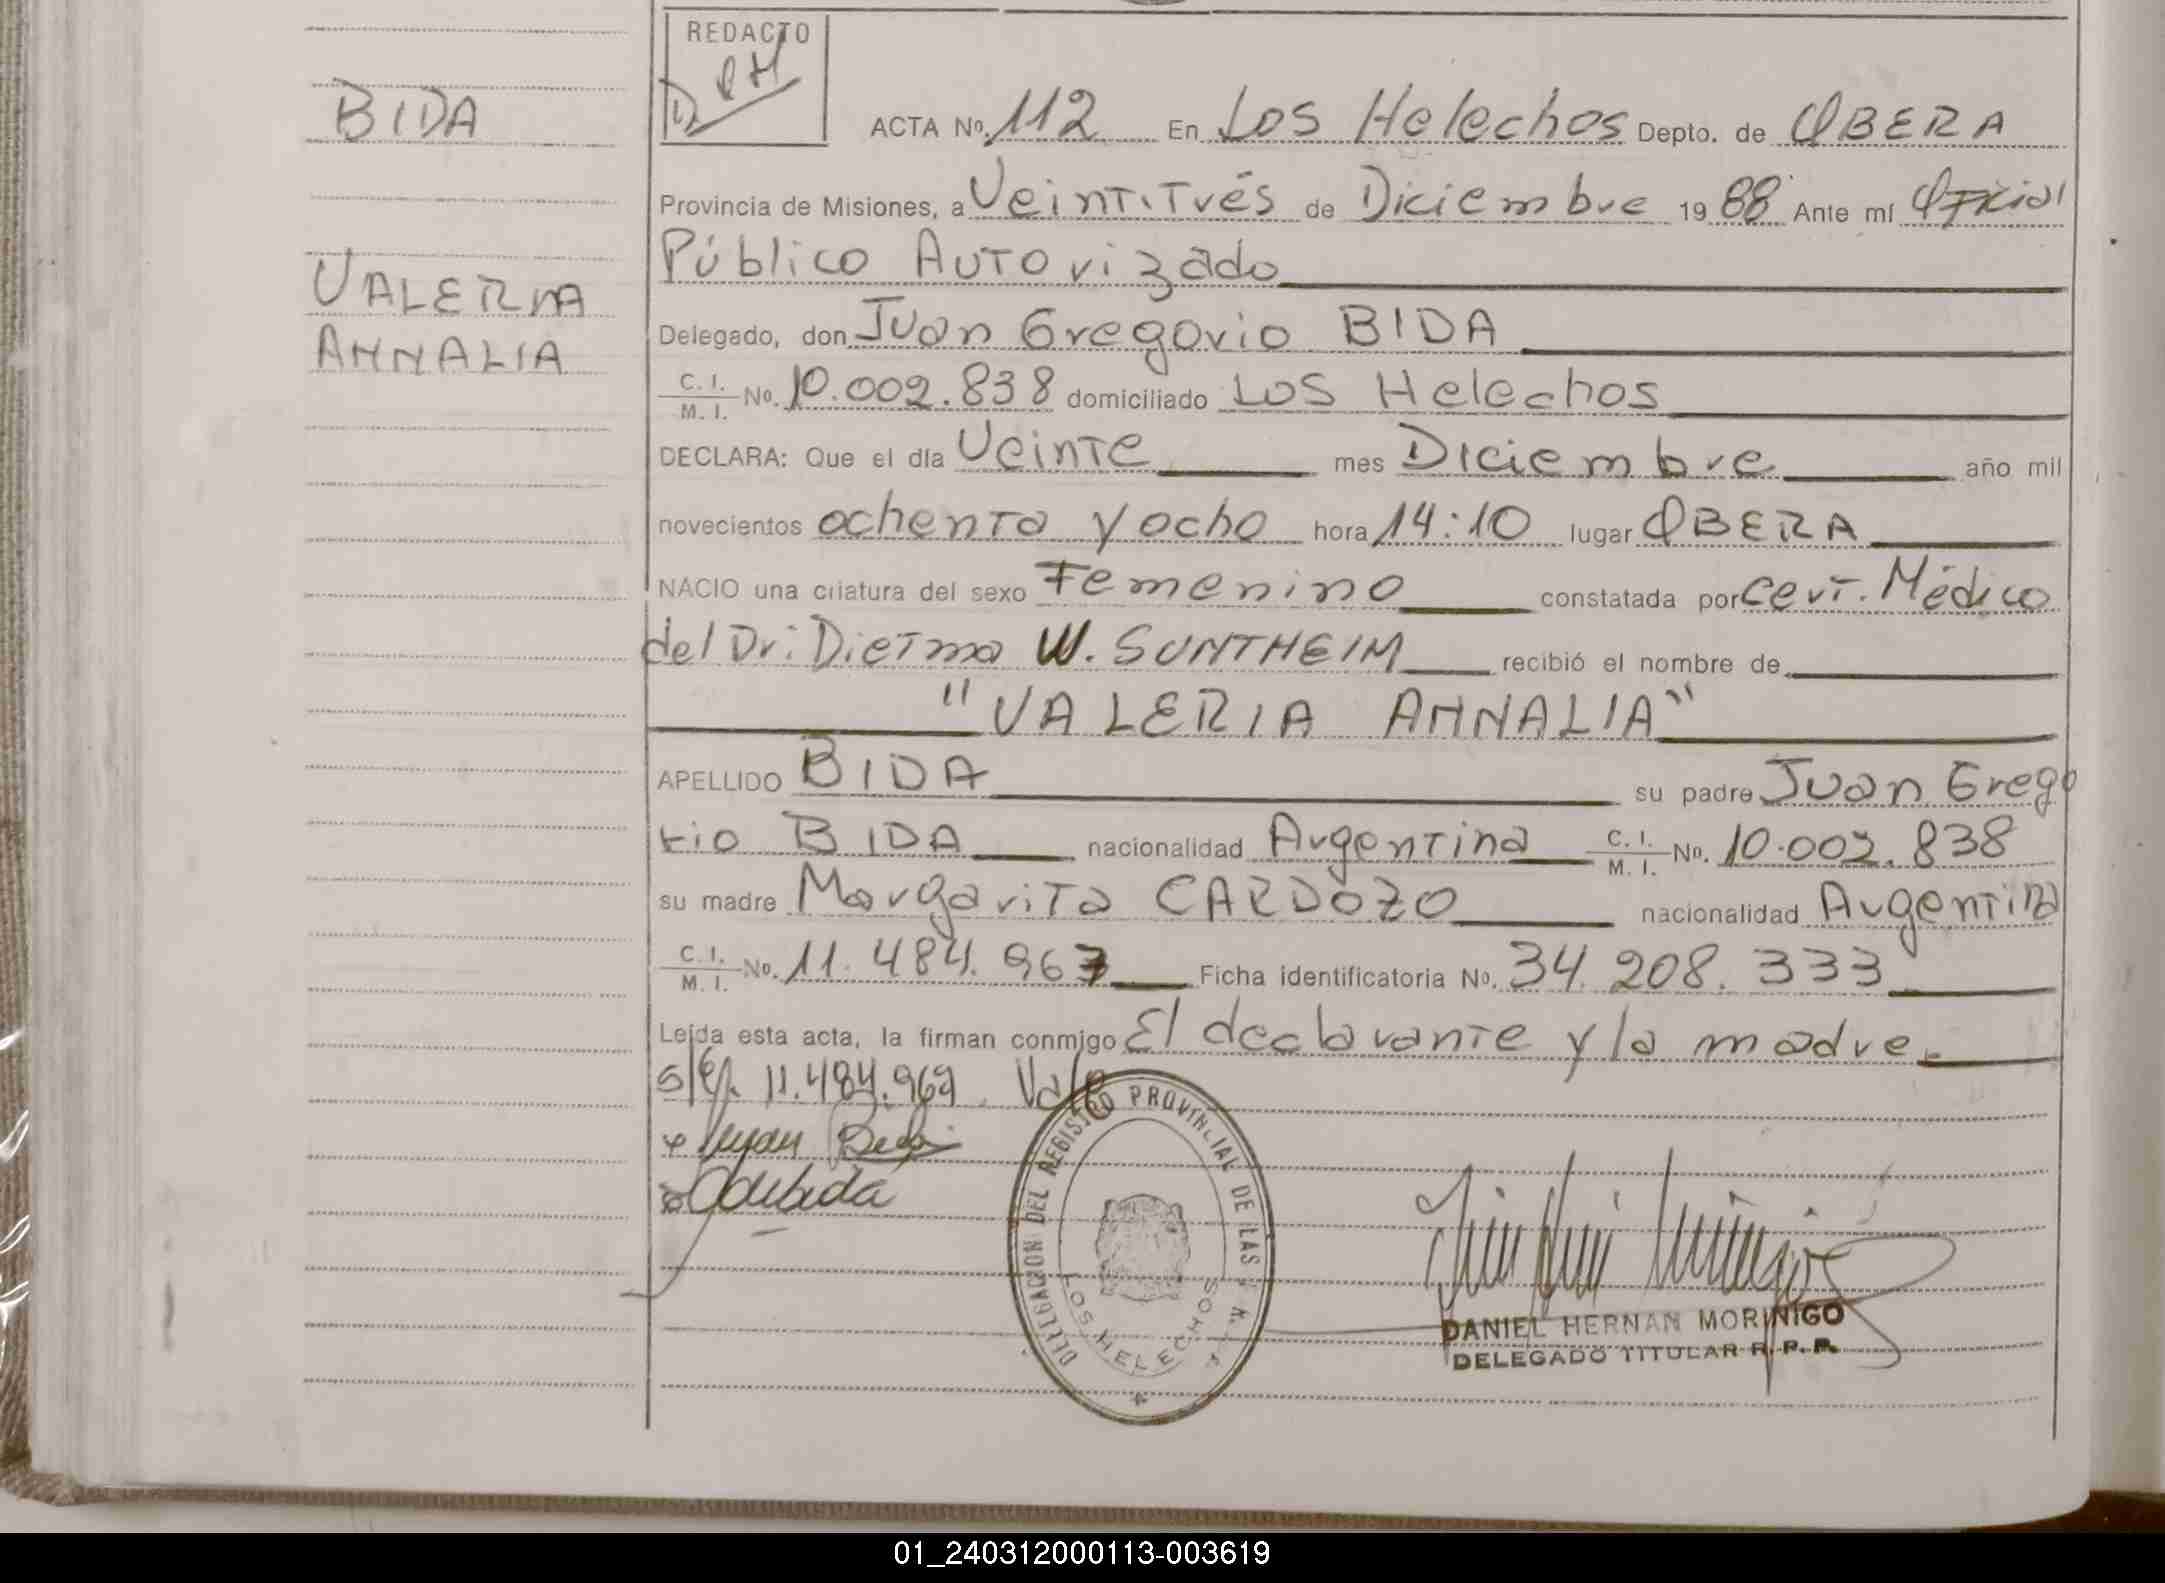 REDACTO
BIDA
ACTA Nº. 112 En Los Helechos Depto. de OBERA
Provincia de Misiones, a Veintitrés de Diciembre 19 88 Ante mí Oficial
Público Autorizado
VALERIA
ANNALIA
Delegado, don Juan Gregorio BIDA
C. I. / M. I. Nº. 10.002.838 domiciliado Los Helechos
DECLARA: Que el día Veinte mes Diciembre año mil
novecientos ochenta y ocho hora 14:10 lugar OBERA
NACIO una criatura del sexo Femenino constatada por Cert. Médico
del Dr: Dietma W. SUNTHEIM recibió el nombre de
"VALERIA ANNALIA"
APELLIDO BIDA su padre Juan Grego
rio BIDA nacionalidad Argentina C. I. / M. I. Nº. 10.002.838
su madre Margarita CARDOZO nacionalidad Argentina
C. I. / M. I. Nº. 11.484.967 Ficha identificatoria Nº. 34.208.333
Leída esta acta, la firman conmigo El declarante y la madre.
11.484.969 Vale
DELEGACION DEL REGISTRO PROVINCIAL DE LAS
LOS HELECHOS
DANIEL HERNAN MORINIGO
DELEGADO TITULAR R. P. P.
01_240312000113-003619